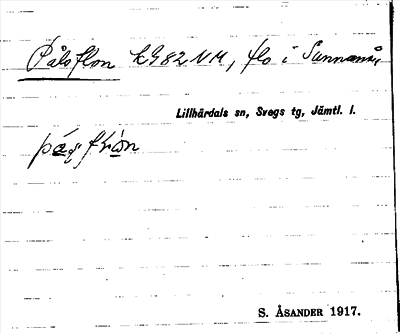 Pålsflon k982NM, flo i Sunnanå,
Lillhärdals sn, Svegs tg, Jämtl. l.
S. ÅSANDER 1917.